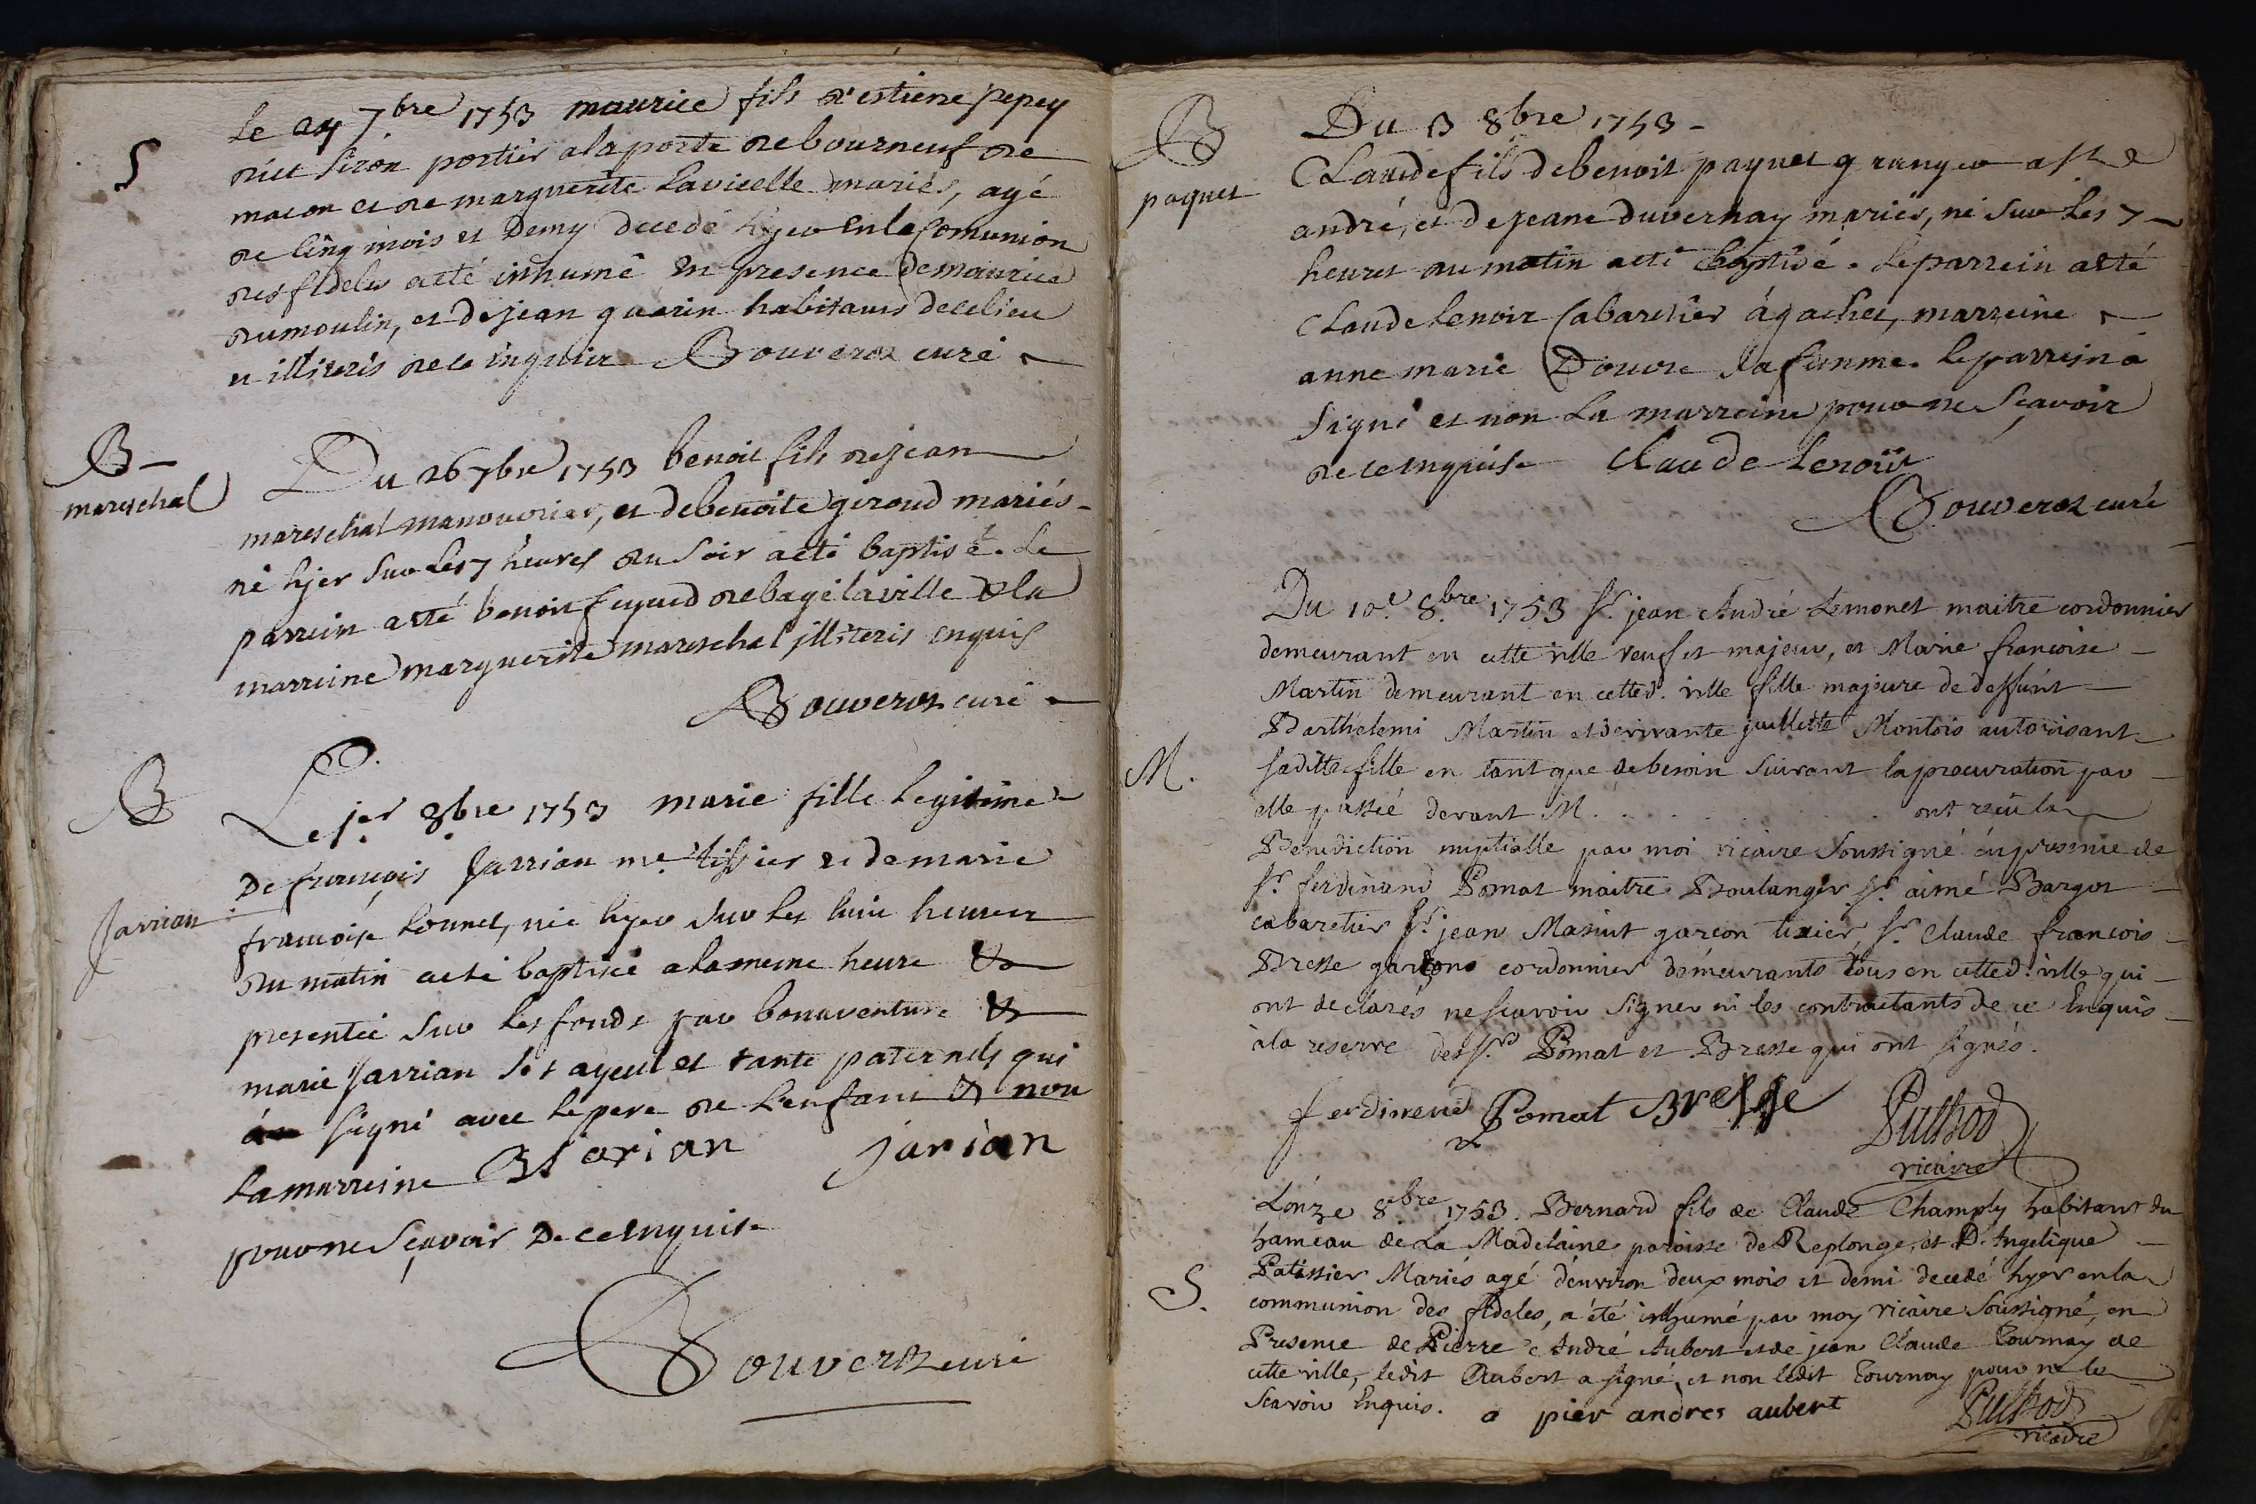 S
le 24 7bre 1753 maurice fils d'estiene pepey
dit Siron portier a la porte de bourneuf de
macon et de marguerite Lavielle mariés, agé
de Cinq mois et Demy decedé hyer en la Comunion
des fideles a eté inhumé en presence de maurice
dumoulin, et de jean guerin habitans de ce lieu
et illiterés de ce inquis Bouverot curé
B
mareschal
Du 26 7bre 1753 benoit fils de jean
mareschal manouvrier, et de benoite giroud mariés
né hjer sur les 7 heures du soir a eté baptisé. Le
parrein a eté benoit feyard de bagé la ville & la
marreine marguerite mareschal jlliteris enquis
Bouverot curé
B
Jarrian
Le 1er 8bre 1753 marie fille legitime
De françois Jarrian me tissier et de marie
françoise Lonnet, née hyer sur les huit heures
du matin a eté baptisée a la meme heure &
presentée sur les fonds par bonaventure &
marie Jarrian ses ayeul et tante paternels qui
a signé avec le pere de l'enfant & non
La marreine B Jarian Jarian
pour ne Sçavoir De ce enquise
Bouverot curé
B
paquet
Du 3 8bre 1753
Claude fils de benoit paquet granger a St
andré, et de jeane duvernay mariés, né sur les 7
heures du matin a eté baptisé. Le parrein a eté
Claude Lenoir Cabaretier à gachet, marreine
anne marie Douvre sa femme. Le parrein a
signé et non La marreine pour ne Sçavoir
de ce enquise Claude lenoir
Bouverot curé
M.
Du 10e 8bre 1753 Sr jean André Lemonet maitre cordonnier
demeurant en cette ville veuf et majeur, et Marie francoise
Martin demeurant en cetted. ville fille majeure de deffunt
Barthelemi Martin et de vivante juillette Montois autorisant
sa ditte fille en tant que de besoin suivant la procuration par
elle passée devant M . . . . . . ont recü la
Benediction nuptialle par moi vicaire soussigné en presence de
Sr ferdinand Pomat maitre Boulanger Sr aimé Bargot
cabaretier Sr jean Masint garcon tixier, Sr Claude francois
Bresse garcons cordonnier demeurants tous en cetted. ville qui
ont declarés ne scavoir signer ni les contractants de ce Enquis
à la reserve desd. Srs Pomat et Bresse qui ont signés.
ferdinend Pomat Bresse
Puthod
vicaire
S.
L'onze 8bre 1753. Bernard fils de Claude Champly habitant du
hameau de la Madelaine paroisse de Replonge, et D. Angelique
Patissier Mariés agé d'environ deux mois et demi decedé hyer en la
communion des fideles, a été inhumé par moy vicaire soussigné, en
Presence de Pierre André Aubert et de jean Claude Tournay de
cette ville, ledit Aubert a signé, et non ledit Tournay pour ne le
Scavoir Enquis. a pier andres aubert
Puthod
vicaire